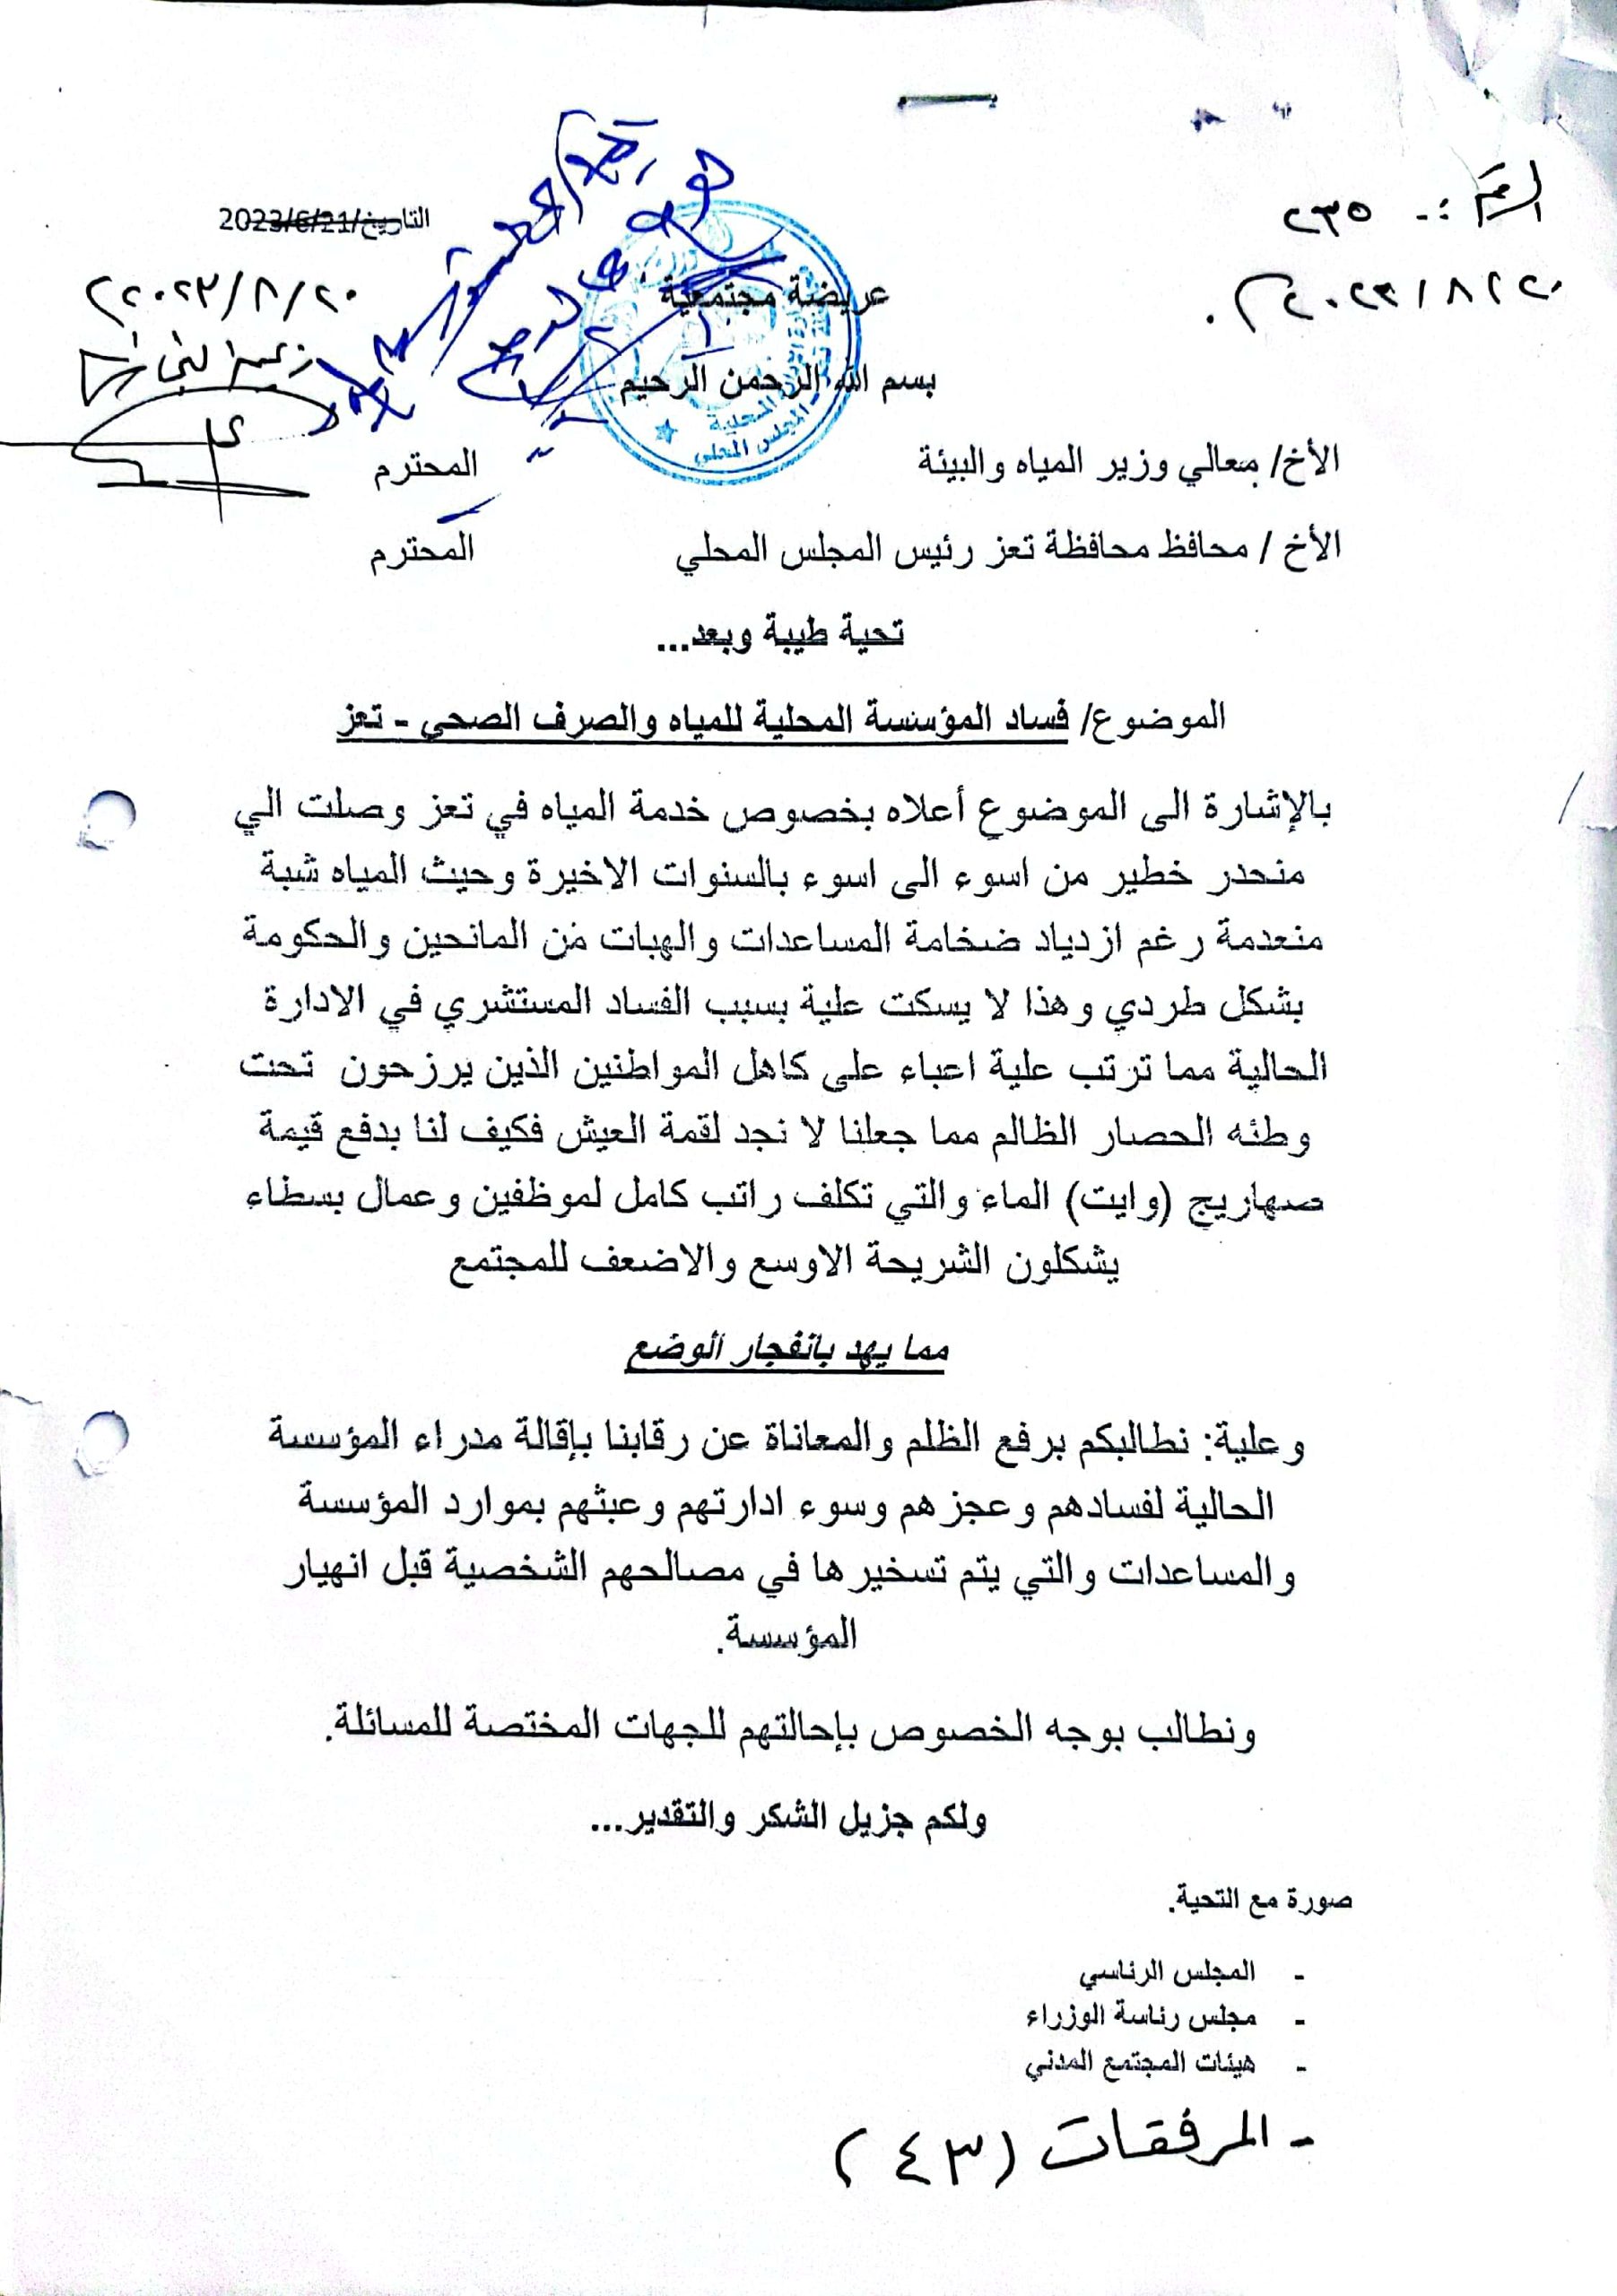 الرقم :- ٢٣٥
٢٠ / ٨ / ٢٠٢٣م.
التاريخ/2023/6/21
٢٠٢٣/٨/٢٠
عريضة مجتمعية
بسم الله الرحمن الرحيم
المجلس المحلي
الأخ/ معالي وزير المياه والبيئة المحترم
الأخ / محافظ محافظة تعز رئيس المجلس المحلي المحترم
تحية طيبة وبعد...
الموضوع/ فساد المؤسسة المحلية للمياه والصرف الصحي - تعز
بالإشارة الى الموضوع أعلاه بخصوص خدمة المياه في تعز وصلت الي
منحدر خطير من اسوء الى اسوء بالسنوات الاخيرة وحيث المياه شبة
منعدمة رغم ازدياد ضخامة المساعدات والهبات من المانحين والحكومة
بشكل طردي وهذا لا يسكت علية بسبب الفساد المستشري في الادارة
الحالية مما ترتب علية اعباء على كاهل المواطنين الذين يرزحون تحت
وطئه الحصار الظالم مما جعلنا لا نجد لقمة العيش فكيف لنا بدفع قيمة
صهاريج (وايت) الماء والتي تكلف راتب كامل لموظفين وعمال بسطاء
يشكلون الشريحة الاوسع والاضعف للمجتمع
مما يهد بانفجار الوضع
وعلية: نطالبكم برفع الظلم والمعاناة عن رقابنا بإقالة مدراء المؤسسة
الحالية لفسادهم وعجزهم وسوء ادارتهم وعبثهم بموارد المؤسسة
والمساعدات والتي يتم تسخيرها في مصالحهم الشخصية قبل انهيار
المؤسسة.
ونطالب بوجه الخصوص بإحالتهم للجهات المختصة للمسائلة.
ولكم جزيل الشكر والتقدير...
صورة مع التحية.
- المجلس الرئاسي
- مجلس رئاسة الوزراء
- هيئات المجتمع المدني
- المرفقات (٤٣)